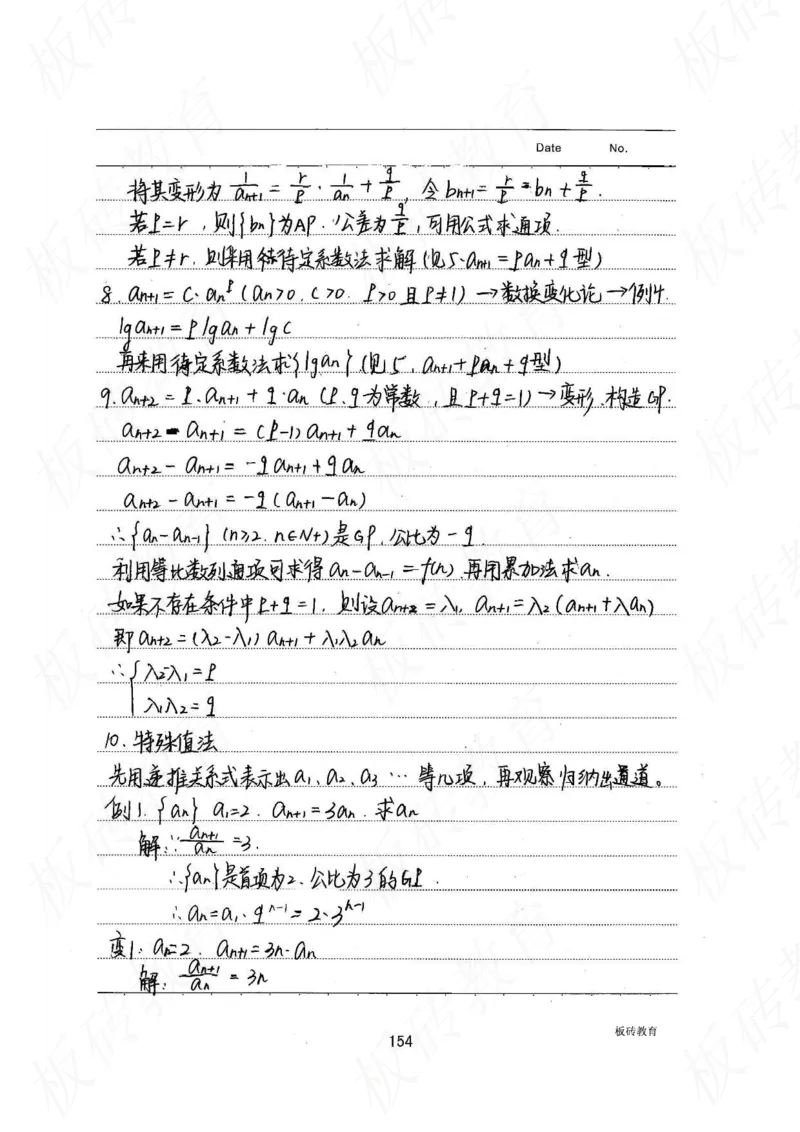 Date No.
将其变形为 1/aₙ₊₁ = r/p · 1/aₙ + q/p, 令 bₙ₊₁ = r/p · bₙ + q/p.
若p=r, 则{bₙ}为AP. 公差为 q/p, 可用公式求通项.
若p≠r. 则采用待定系数法求解(见5.aₙ₊₁=paₙ+q型)
8. aₙ₊₁ = C·aₙᵖ (aₙ>0. C>0. p>0且p≠1) →数换变化论→例4.
lgaₙ₊₁ = plgaₙ + lgC
再来用待定系数法求{lgaₙ} (见5. aₙ₊₁+paₙ+q型)
9. aₙ₊₂ = p.aₙ₊₁ + q·aₙ (p.q为常数, 且p+q=1) →变形.构造GP.
aₙ₊₂ - aₙ₊₁ = (p-1)aₙ₊₁ + qaₙ
aₙ₊₂ - aₙ₊₁ = -qaₙ₊₁ + qaₙ
aₙ₊₂ - aₙ₊₁ = -q(aₙ₊₁ - aₙ)
∴{aₙ-aₙ₋₁} (n≥2. n∈N+)是GP, 公比为-q
利用等比数列通项可求得aₙ-aₙ₋₁=f(n).再用累加法求aₙ.
如果不存在条件中p+q=1, 则设aₙ₊₂=λ₁. aₙ₊₁=λ₂(aₙ₊₁+λaₙ)
即aₙ₊₂=(λ₂-λ₁)aₙ₊₁+λ₁λ₂aₙ
∴{λ₂-λ₁=p
λ₁λ₂=q
10.特殊值法
先用递推关系式表示出a₁、a₂、a₃…等几项,再观察归纳出通道。
例1.{aₙ} a₁=2. aₙ₊₁=3aₙ.求aₙ
解:∵ aₙ₊₁/aₙ =3.
∴{aₙ}是首项为2.公比为3的GP.
∴aₙ=a₁·qⁿ⁻¹=2·3ⁿ⁻¹
变1:aₙ=2. aₙ₊₁=3n·aₙ
解: aₙ₊₁/aₙ = 3n
154
板砖教育